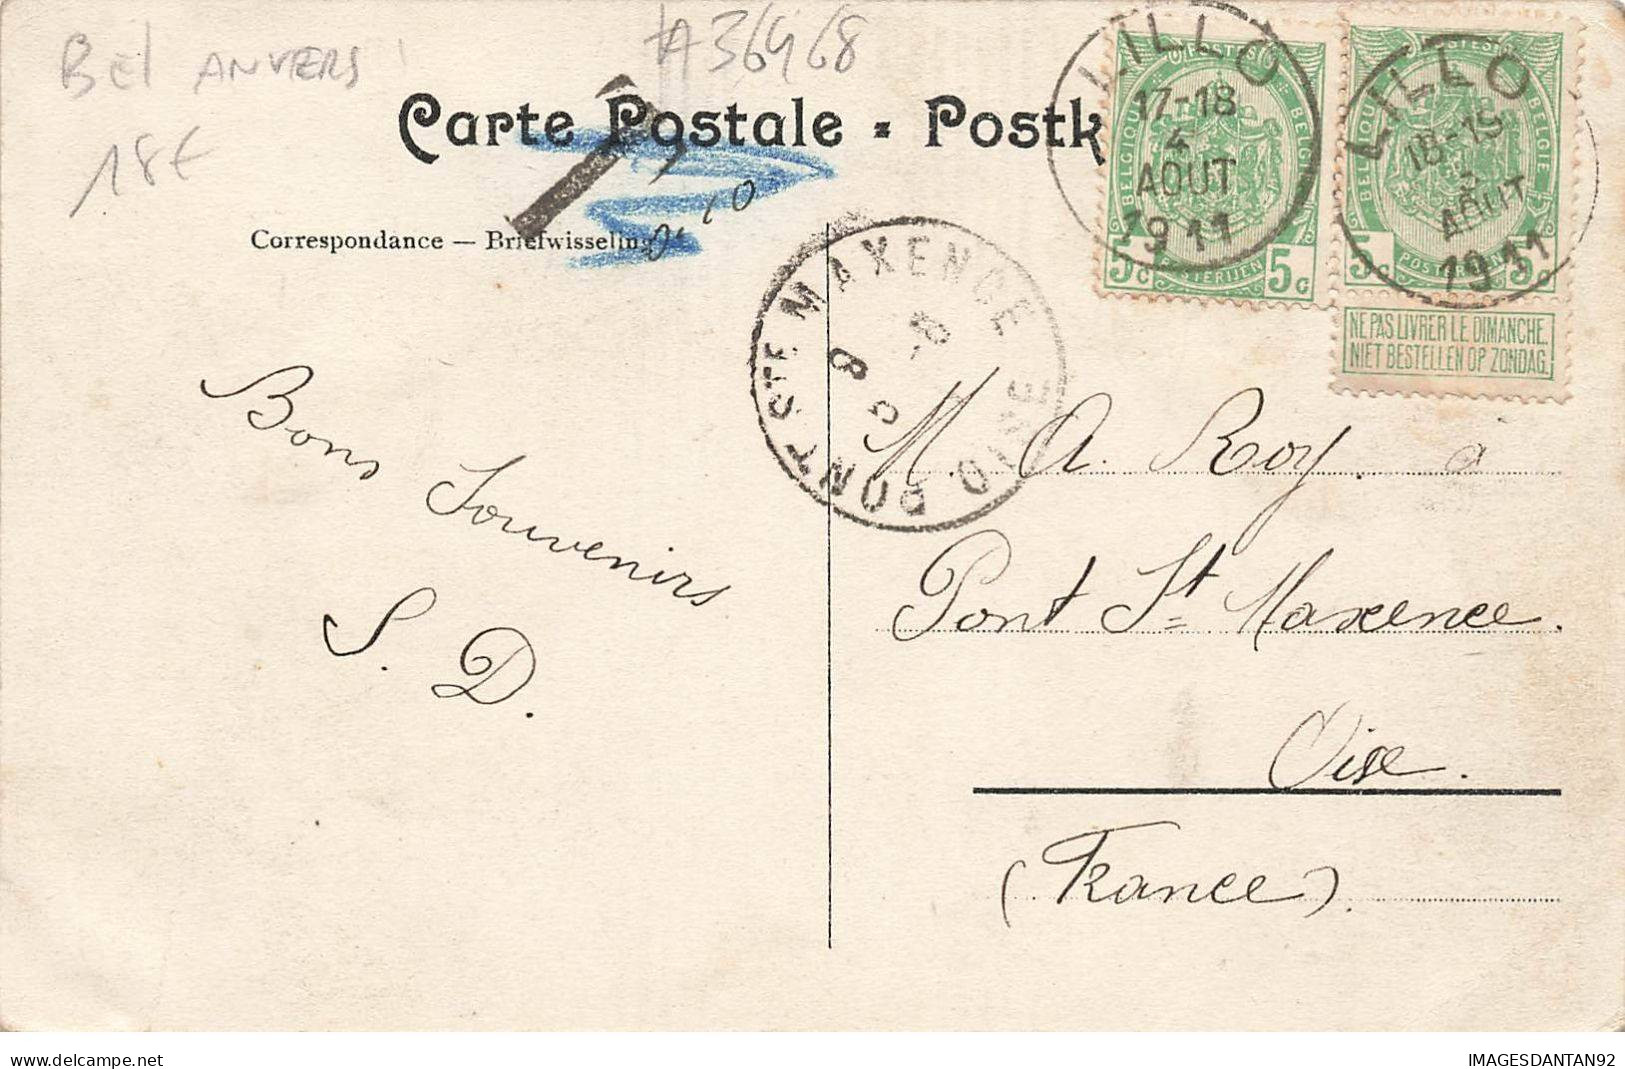 Bel ANVERS
#A36468
18€
Carte Postale - Postk
T
0,10
Correspondance — Briefwisseling
LILLO
17-18
4
AOUT
1911
LILLO
18-19
3
AOUT
1911
POSTES
BELGIQUE
BELGIE
5c POSTERIJEN 5c
POSTES
BELGIQUE
BELGIE
5c POSTERIJEN 5c
NE PAS LIVRER LE DIMANCHE.
NIET BESTELLEN OP ZONDAG.
PONT STE MAXENCE
OISE
Bons Souvenirs
S. D.
M. A. Roy. à
Pont St Maxence.
Oise.
(France).
delcampe.net
IMAGESDANTAN92